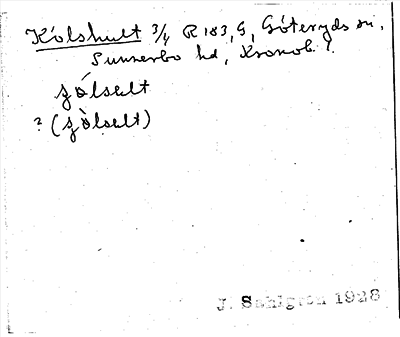 Kólshult 3/4 R 183, G, Göteryds sn,
Sunnerbo hd, Kronob. l.
ʒólselt
? (ʒòlselt)
J. Sahlgren 1928